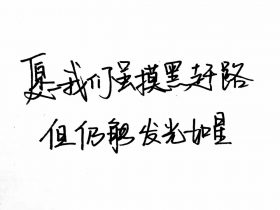 愿我们虽摸黑赶路
但仍能发光如星